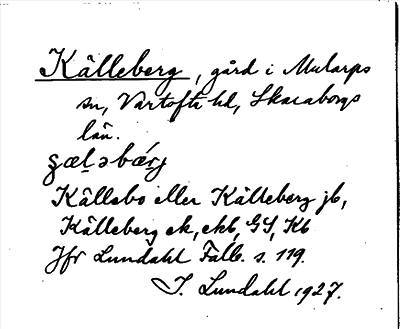 Källeberg, gård i Mularps
sn, Vartofta hd, Skaraborgs
län.
ʂæl̠əbærj
Källebo eller Källeberg jb,
Källeberg ek, ekb, GS, Kb
Jfr Lundahl Falb. s. 119.
I. Lundahl 1927.